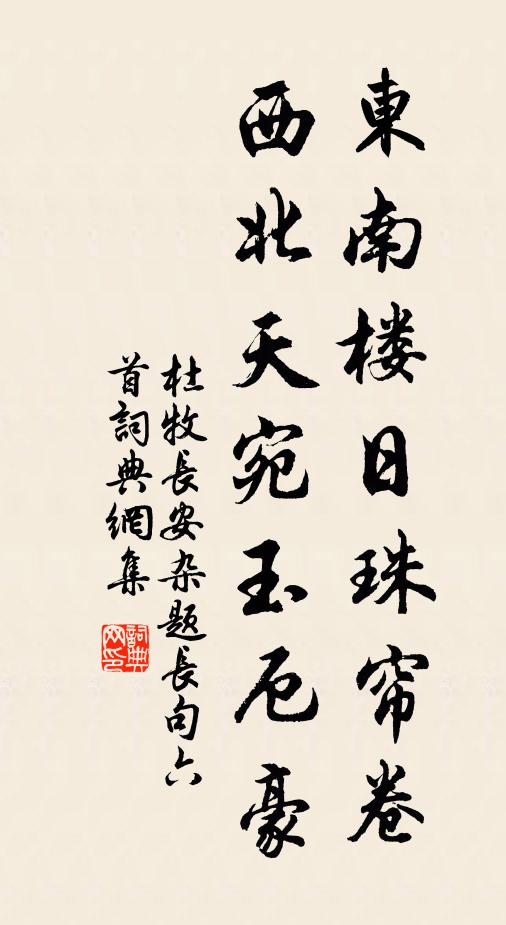 東南楼日珠帘卷
西北天宛玉厄豪
杜牧長安杂題長句六
首詞典網集
詞典
网印